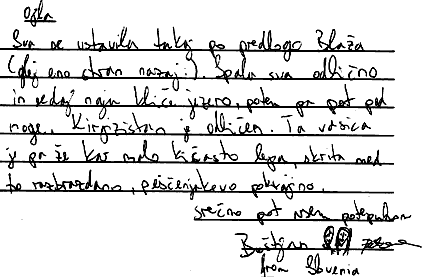 ojla
Sva se ustavila takoj po predlogo Blaža
(glej eno stran nazaj!). Spala sva odlično
in sedaj naju kliče jezero, potem pa pot pod
noge. Kirgizistan je odličen. Ta vasica
je pa že kar malo kičasto lepa, skrita med
to razbrazdano, peščenjakovo pokrajino.
srečno pot vsem potepuhom
Boštjan
from Slovenia